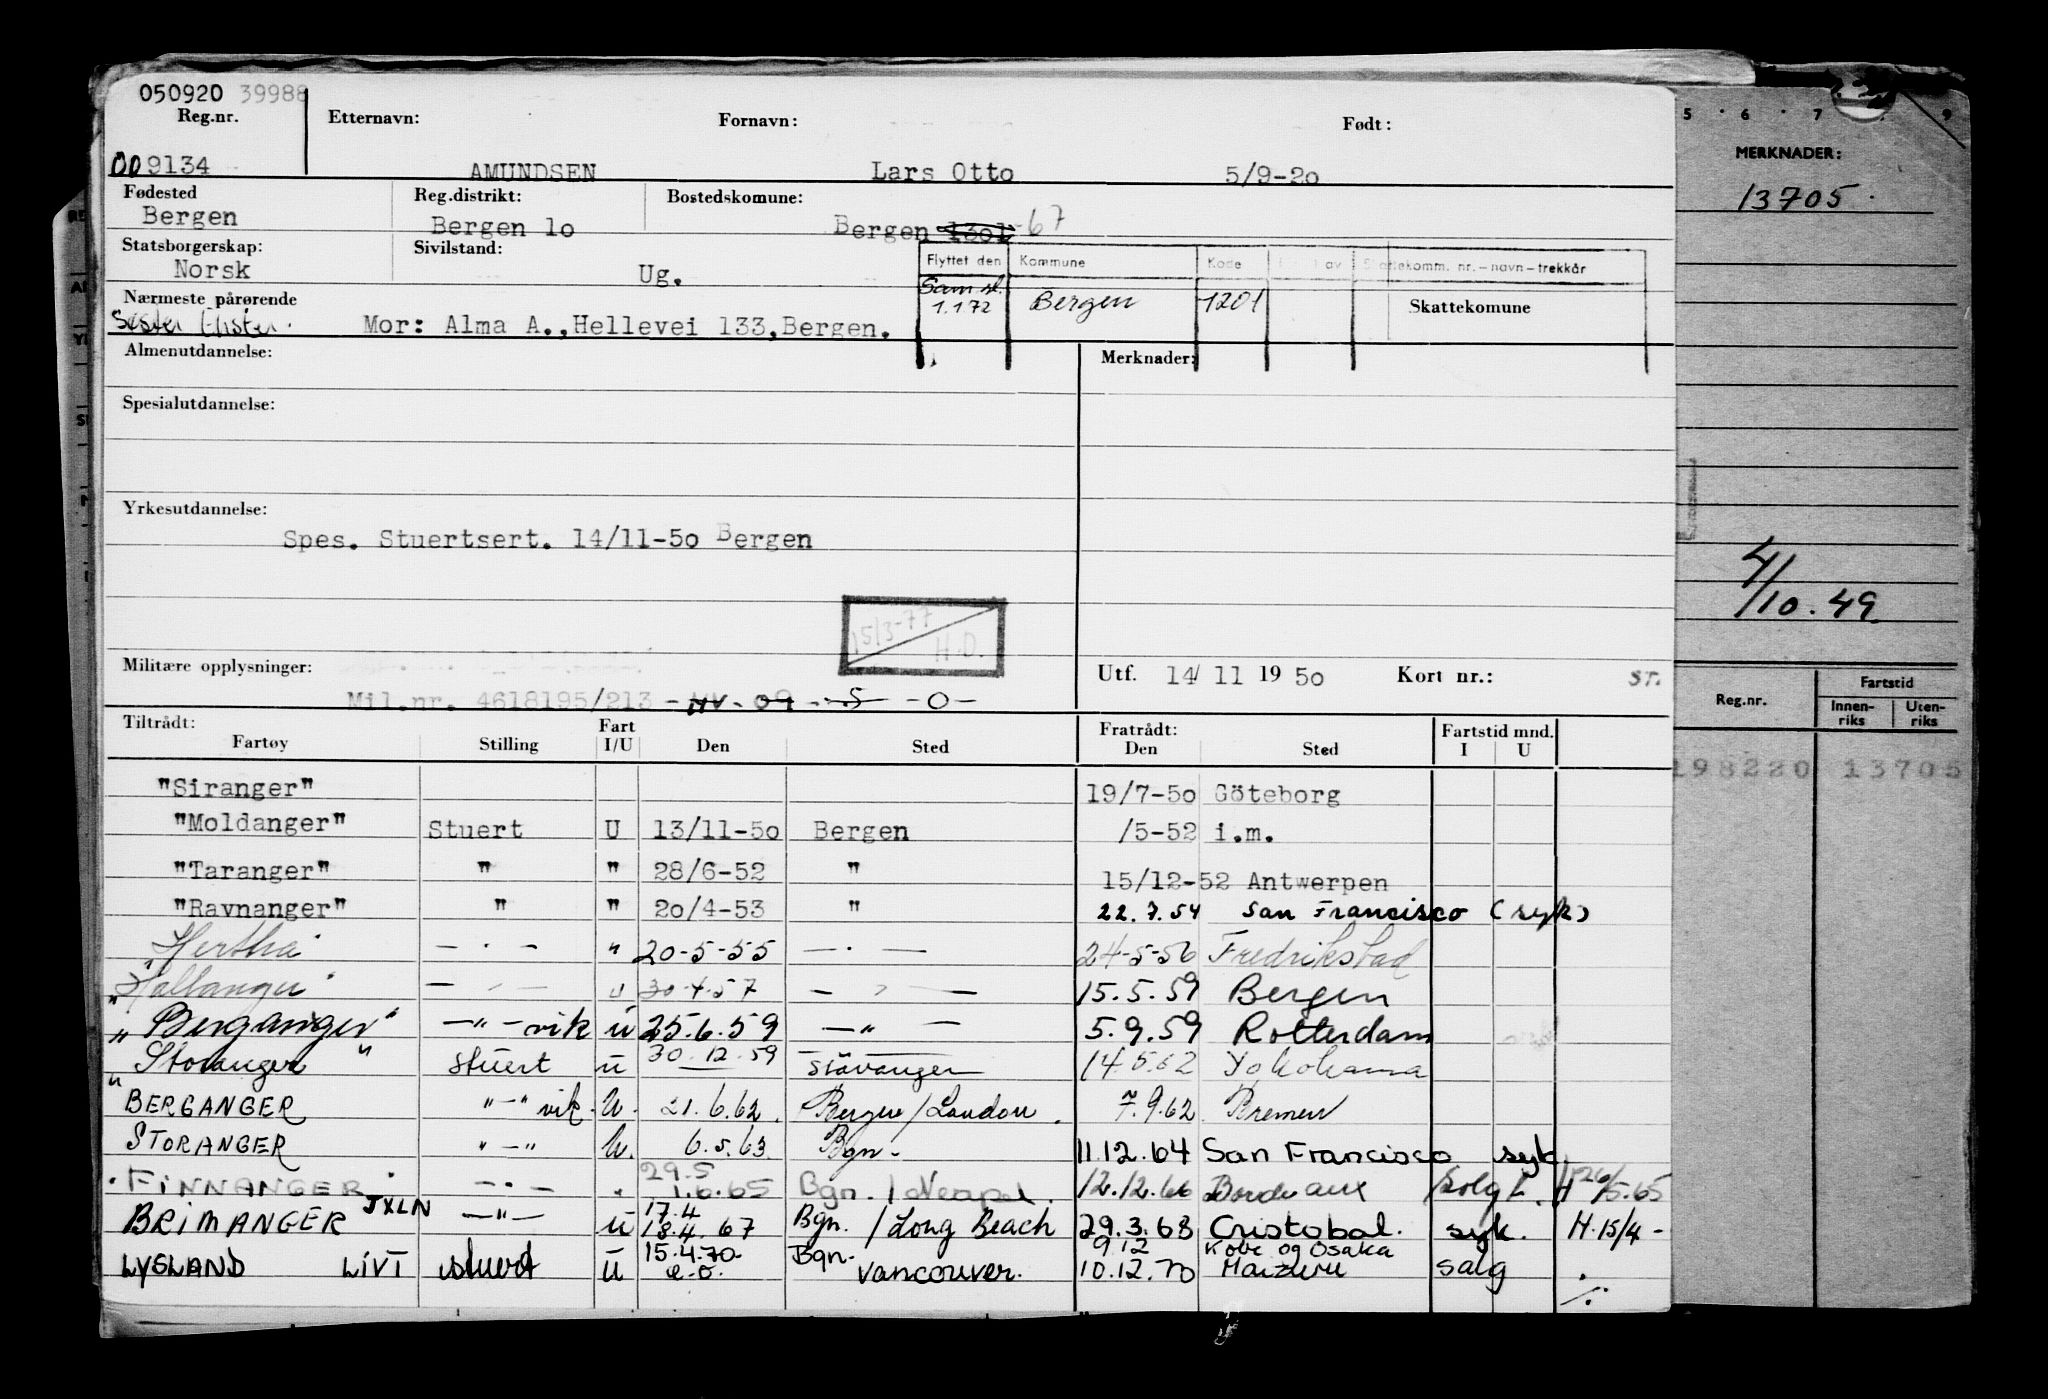 050920 39988
Reg.nr. Etternavn: Fornavn: Født:
009134 AMUNDSEN Lars Otto 5/9-20
Fødested Reg.distrikt: Bostedskomune:
Bergen Bergen 10 Bergen 1301 -67
Statsborgerskap: Sivilstand:
Norsk Ug.
Flyttet den Kommune Kode Skattekomm. nr. – navn – trekkår
1.1.72 Bergen 1201 Skattekomune
Nærmeste pårørende
Søster Mor: Alma A., Hellevei 133, Bergen.
Almenutdannelse: Merknader:
Spesialutdannelse:
Yrkesutdannelse:
Spes. Stuertsert. 14/11-50 Bergen
15/3-77 H.D.
Militære opplysninger: Utf. 14/11 1950 Kort nr.: ST.
Mil.nr. 4618195/213 - HV - 09 - S - O -
Tiltrådt: Fart Fratrådt: Fartstid mnd.
Fartøy Stilling I/U Den Sted Den Sted I U
"Siranger" 19/7-50 Göteborg
"Moldanger" Stuert U 13/11-50 Bergen /5-52 i.m.
"Taranger" " " 28/6-52 " 15/12-52 Antwerpen
"Ravnanger" " " 20/4-53 " 22.7.54 San Francisco (syk)
"Hertha" — " — " 20-5-55 — " — 24-5-56 Fredrikstad
— " — " 30-4-57 — " — 15.5.59 Bergen
"Berganger" — " — vik ü 25.6.59 — " — 5.9.59 Rotterdam
"Storanger" stuert ü 30.12.59 Stavanger 14.5.62 Yokohama
BERGANGER — " — vik. U. 21.6.62 Bergen / London. 7.9.62 Bremen
STORANGER " — " U. 6.5.63 Bgn. 11.12.64 San Francisco syk.
FINNANGER — " — " 29.5 1.6.65 Bgn. / Neapel. 12.12.66 Bordeaux Solgt. H 26/5.65
BRIMANGER JXLN — " — ü 17.4 18.4.67 Bgn. / Long Beach 29.3.68 Cristobal. syk. H. 15/4 -
LYSLAND LIVT stuert ü 15.4.70 e.o. Bgn. Vancouver. 9.12 10.12.70 Kobe og Osaka Maizuru salg ./.
5 · 6 · 7 9
MERKNADER:
13705
4/10.49
Reg.nr. Fartstid
Innenriks Utenriks
198220 13705